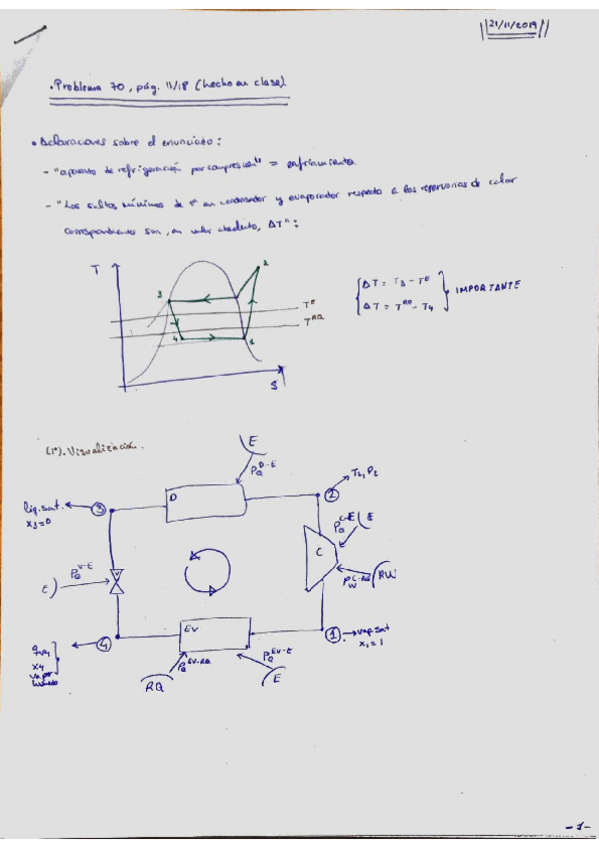 21/11/2019
• Problema 70, pág. 11/18 (hecho en clase).
• Aclaraciones sobre el enunciado:
- "aparato de refrigeración por compresión" = enfriamiento
- "Los saltos mínimos de tª en condensador y evaporador respecto a los reservorios de calor
correspondientes son, en valor absoluto, ΔT":
T
2
3
T^E
T^RQ
4
1
S
ΔT = T3 - T^E
ΔT = T^RQ - T4
IMPORTANTE
(1º). Visualización.
E
P_Q^D-E
liq. sat.
x3=0
3
D
2
T2, P2
P_Q^C-E
E
C
P_W^C-RW
RW
E
P_Q^V-E
V
EV
4
x4
vapor
húmedo
1
vap. sat
x1=1
P_Q^EV-RQ
RQ
P_Q^EV-E
E
-1-